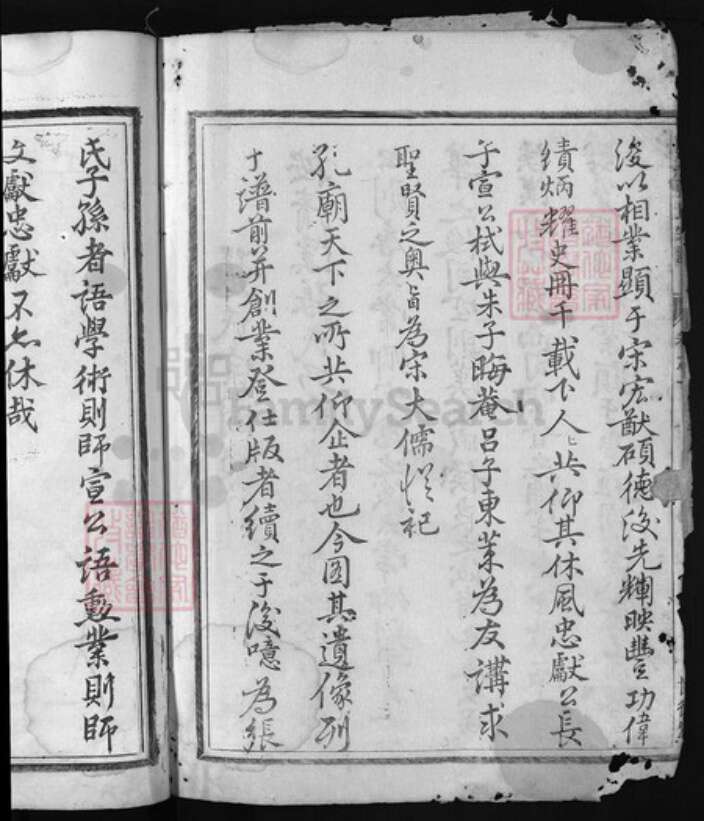 後以相業顯于宋宏猷碩德後先輝映豐功偉
績炳耀史冊千載下人人共仰其休風忠獻公長
子宣公栻與朱子晦菴呂子東萊為友講求
聖賢之奧旨為宋大儒從祀
孔廟天下之所共仰企者也今圖其遺像列
于譜前并創業登仕版者續之于後噫為張
氏子孫者語學術則師宣公語勳業則師
文獻忠獻不亦休哉
FamilySearch